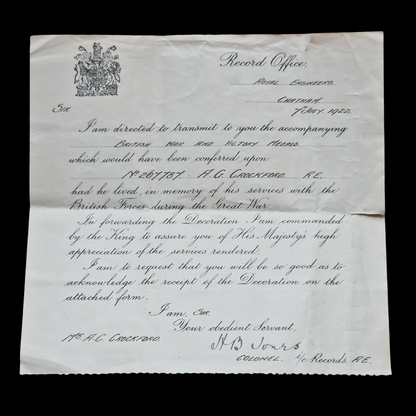 Record Office,
ROYAL ENGINEERS
CHATHAM.
7 JULY. 1922.
SIR
I am directed to transmit to you the accompanying
BRITISH WAR AND VICTORY MEDALS.
which would have been conferred upon
No 267787. A. G. CROCKFORD. R.E.
had he lived, in memory of his services with the
British Forces during the Great War.
In forwarding the Decoration I am commanded
by the King to assure you of His Majesty's high
appreciation of the services rendered.
I am to request that you will be so good as to
acknowledge the receipt of the Decoration on the
attached form.
I am, SIR,
Your obedient Servant,
A. G. CROCKFORD.
COLONEL. i/c Records, R.E.